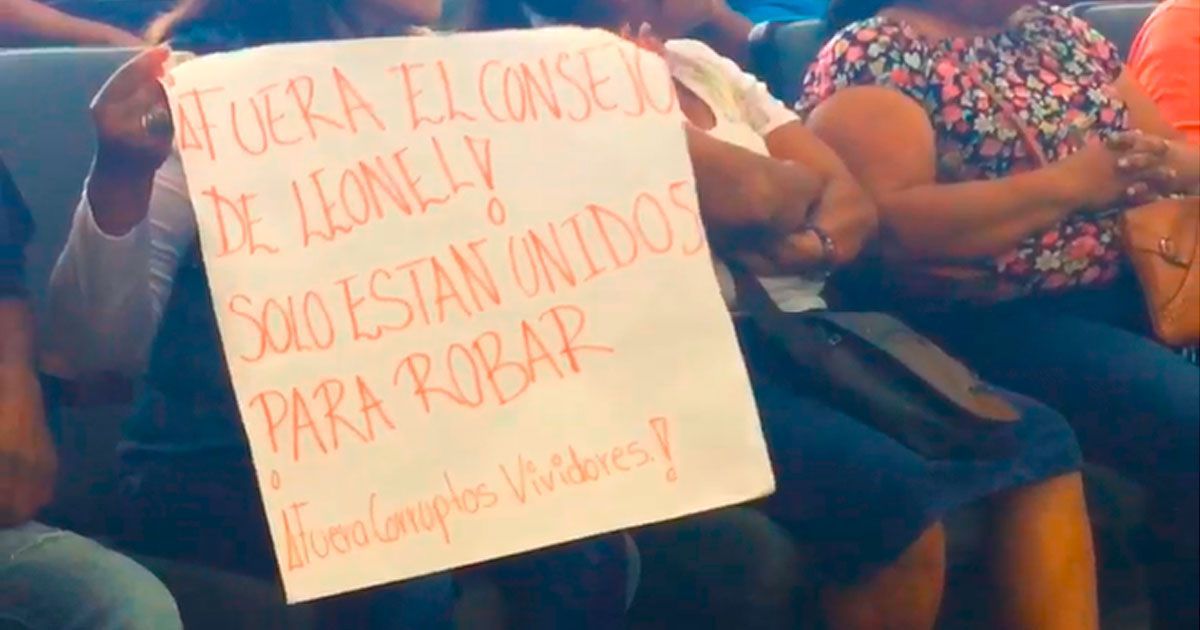 AFUERA EL CONSEJO
DE LEONEL!
SOLO ESTAN UNIDOS
PARA ROBAR
¡AFuera Corruptos Vividores.!